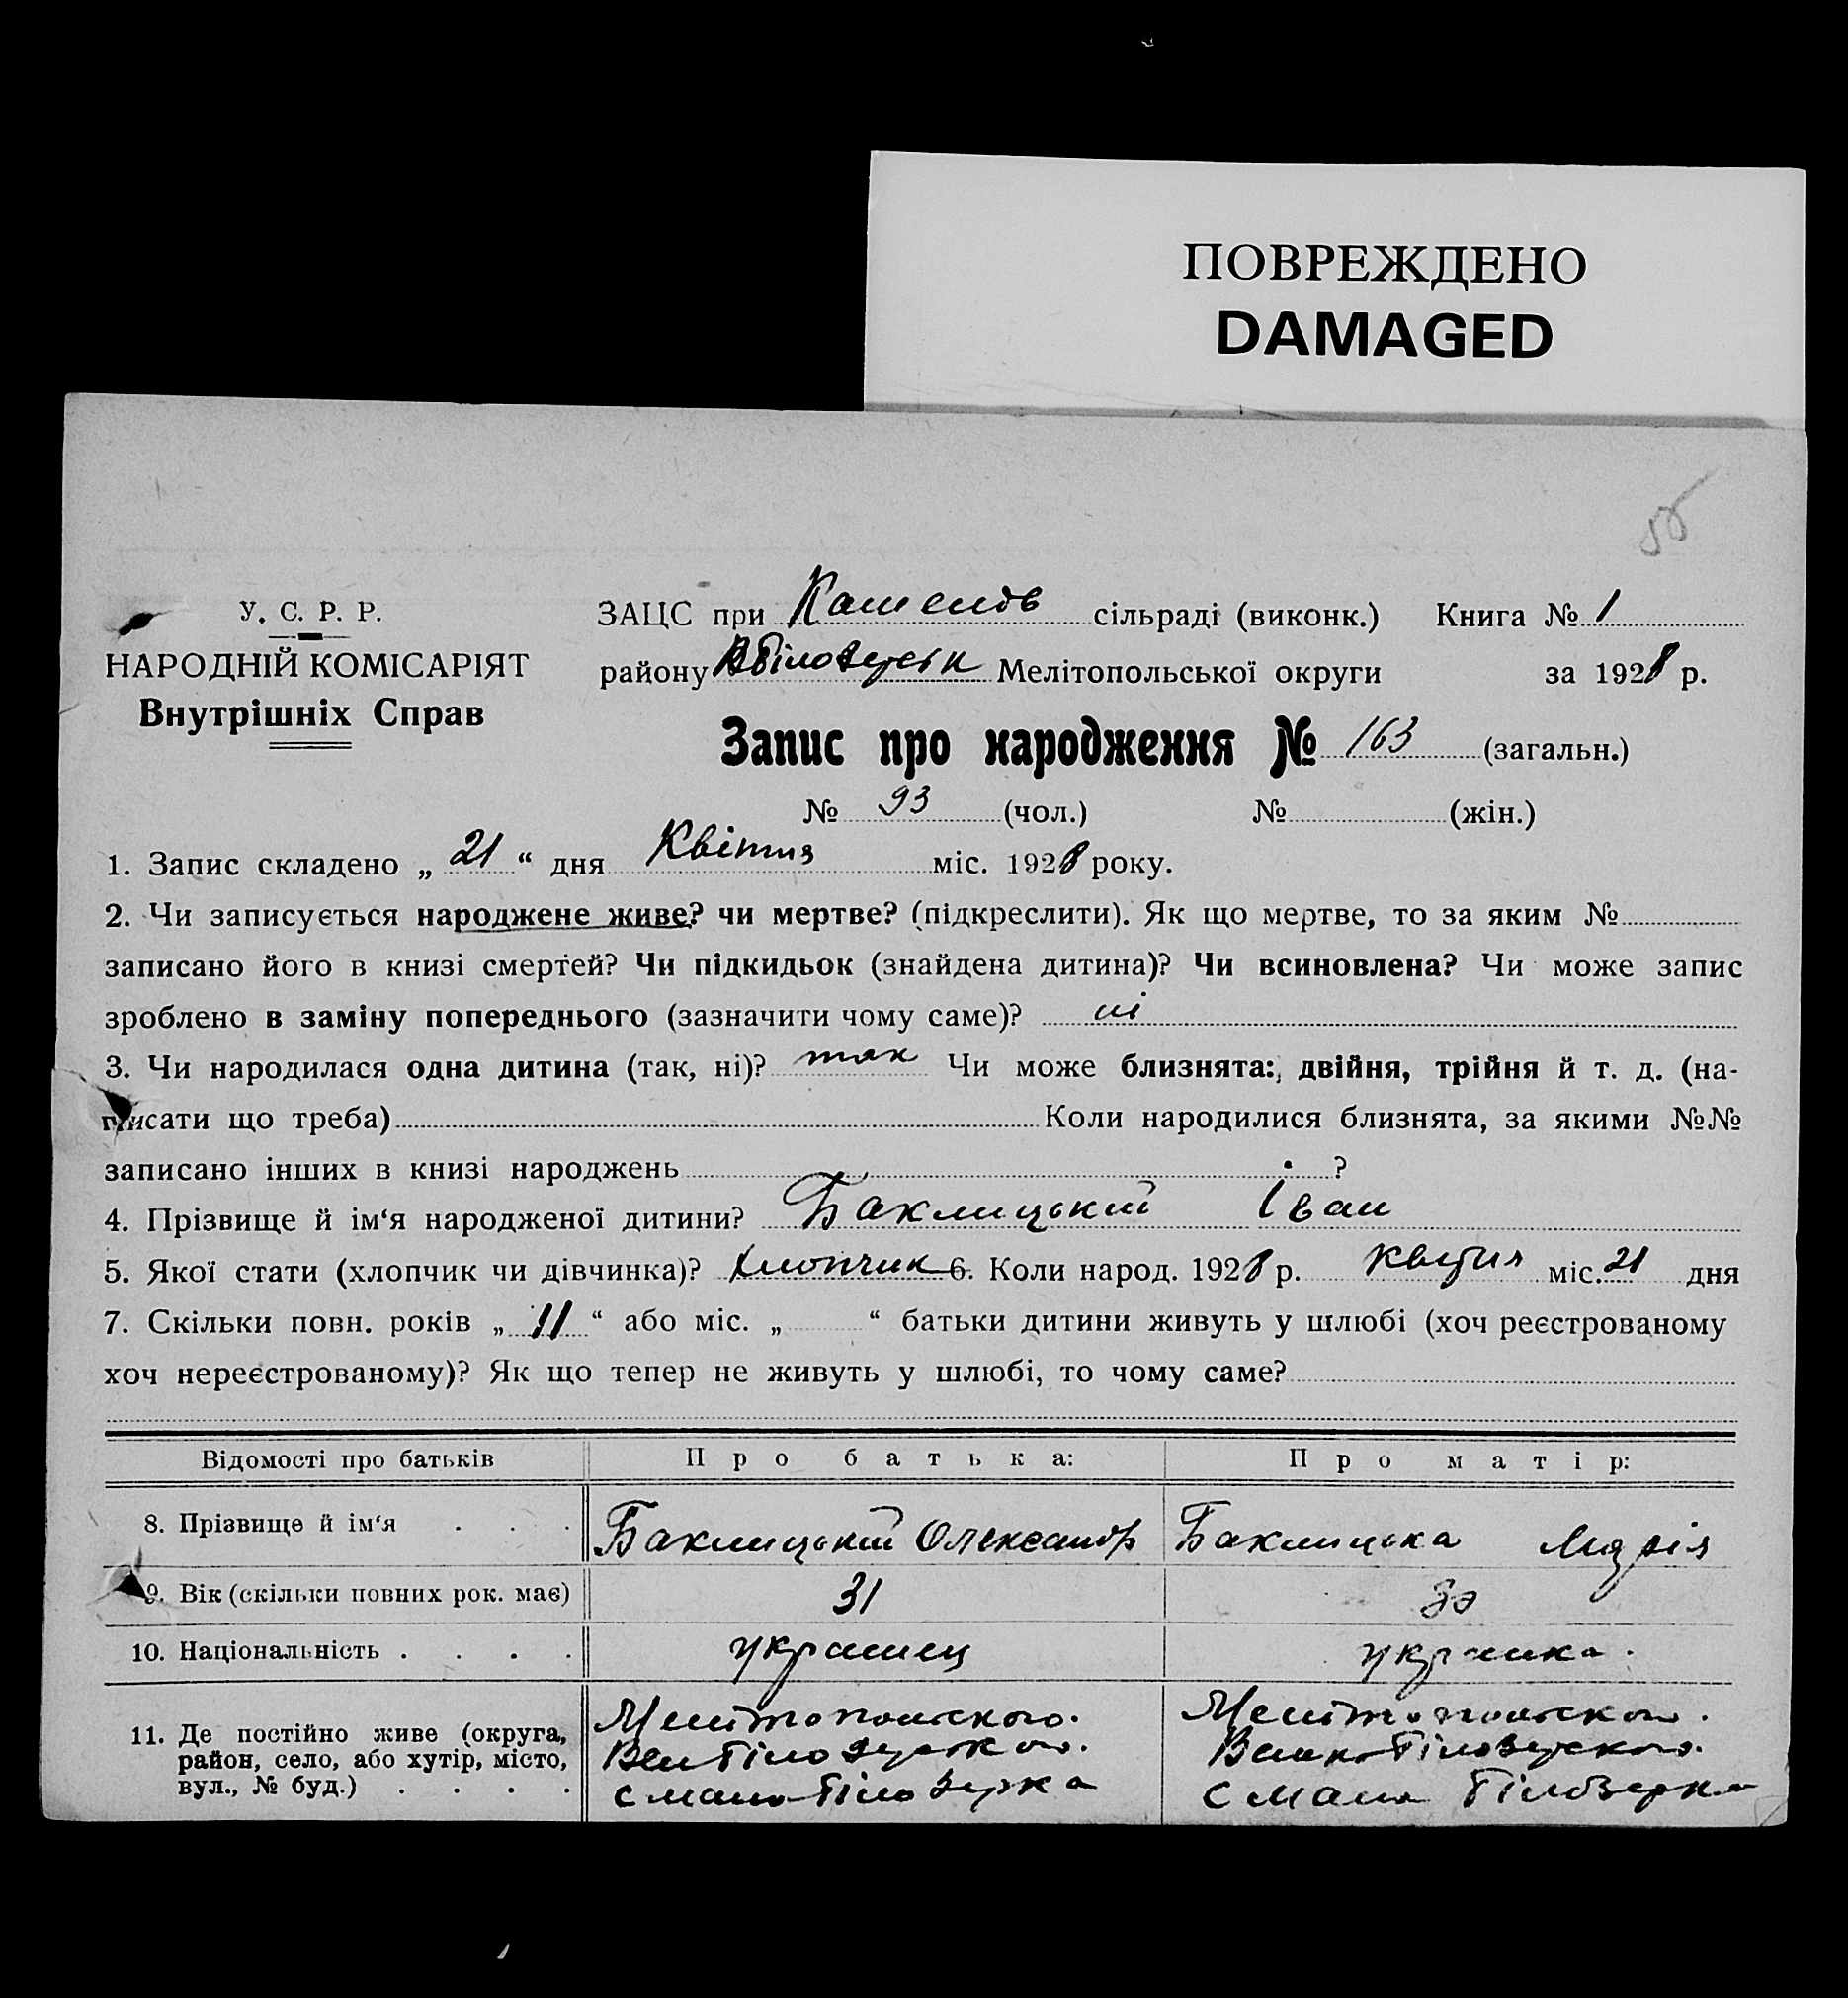 ПОВРЕЖДЕНО
DAMAGED
У. С. Р. Р.
НАРОДНІЙ КОМІСАРІЯТ
Внутрішніх Справ
ЗАЦС при сільраді (виконк.) Книга № 1
району Мелітопольської округи за 1928 р.
Запис про народження № 163 (загальн.)
№ 93 (чол.) № (жін.)
1. Запис складено „ 21 “ дня Квітня міс. 1928 року.
2. Чи записується народжене живе? чи мертве? (підкреслити). Як що мертве, то за яким №
записано його в книзі смертей? Чи підкидьок (знайдена дитина)? Чи всиновлена? Чи може запис
зроблено в заміну попереднього (зазначити чому саме)? ні
3. Чи народилася одна дитина (так, ні)? так Чи може близнята:, двійня, трійня й т. д. (на-
писати що треба) Коли народилися близнята, за якими №№
записано інших в книзі народжень ?
4. Прізвище й ім‘я народженої дитини? Баклицький Іван
5. Якої стати (хлопчик чи дівчинка)? хлопчик 6. Коли народ. 1928 р. квітня міс. 21 дня
7. Скільки повн. років „ 11 “ або міс. „ “ батьки дитини живуть у шлюбі (хоч реєстрованому
хоч нереєстрованому)? Як що тепер не живуть у шлюбі, то чому саме?
Відомості про батьків Про батька: Про матір:
8. Прізвище й ім‘я . . . Баклицький Олександр Баклицька Марія
9. Вік (скільки повних рок. має) 31
10. Національність . . . . українец украинка.
11. Де постійно живе (округа, Мелітопольского. Мелітопольского.
район, село, або хутір, місто, Велбілозерского. Великобілозерского.
вул., № буд.) . . . . с Мало білозерка с Мало Білозерка